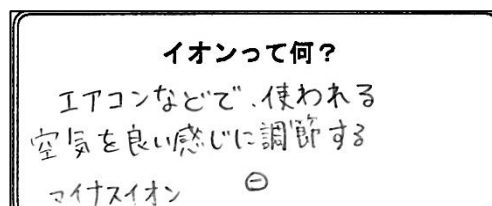 イオンって何？
エアコンなどで、使われる
空気を良い感じに調節する
マイナスイオン ⊖